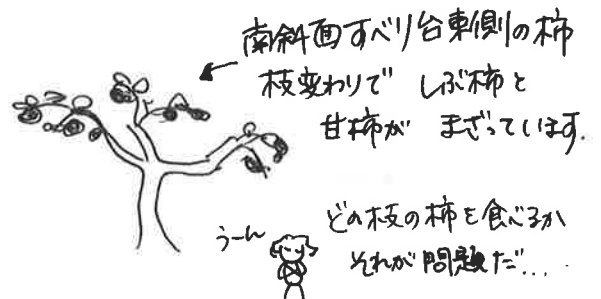 南斜面すべり台東側の柿
枝変わりで しぶ柿と
甘柿が まざっています.
どの枝の柿を食べるか
それが問題だ...
うーん